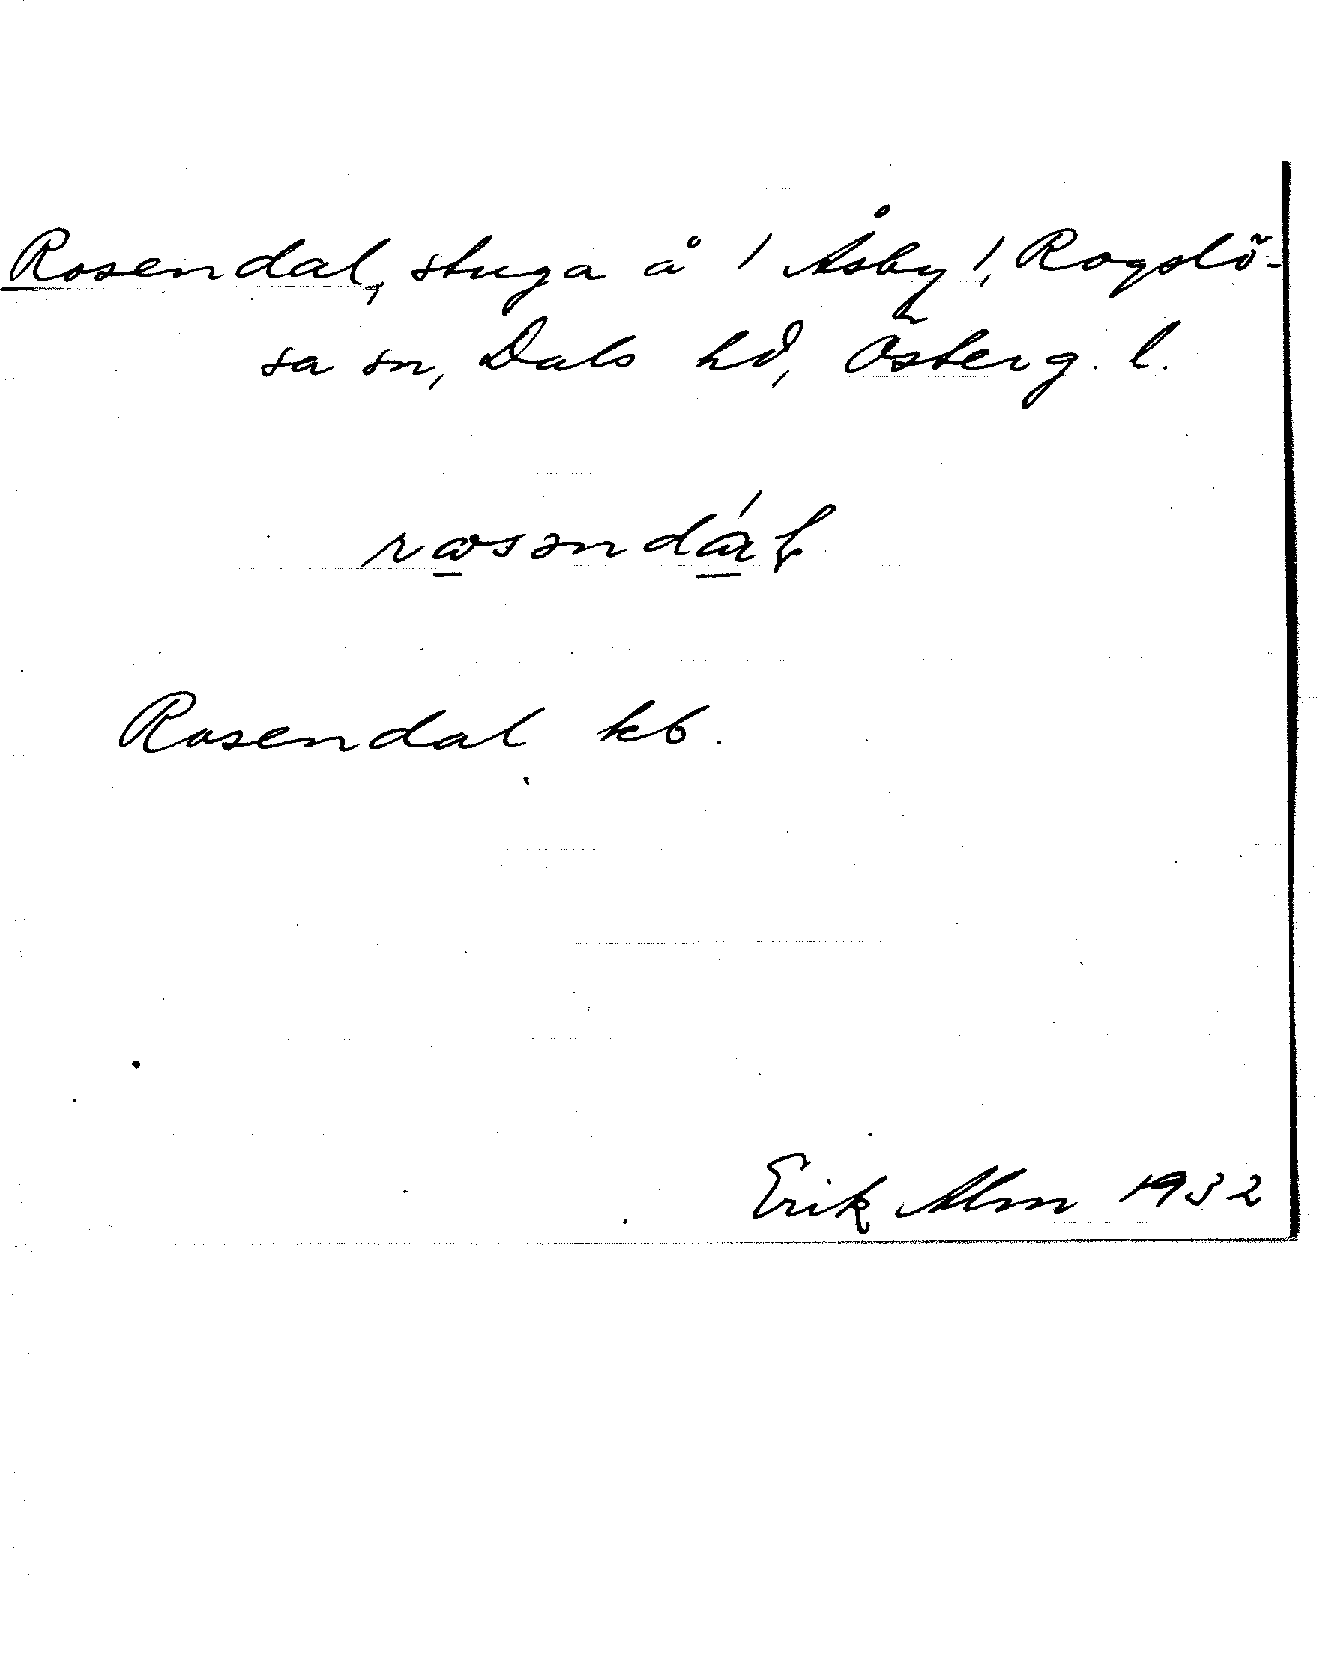 Rosendal, stuga å / Åsby /, Rogslö-
sa sn, Dals hd, Österg. l.
Rosendal kb.
Erik Alm 1932